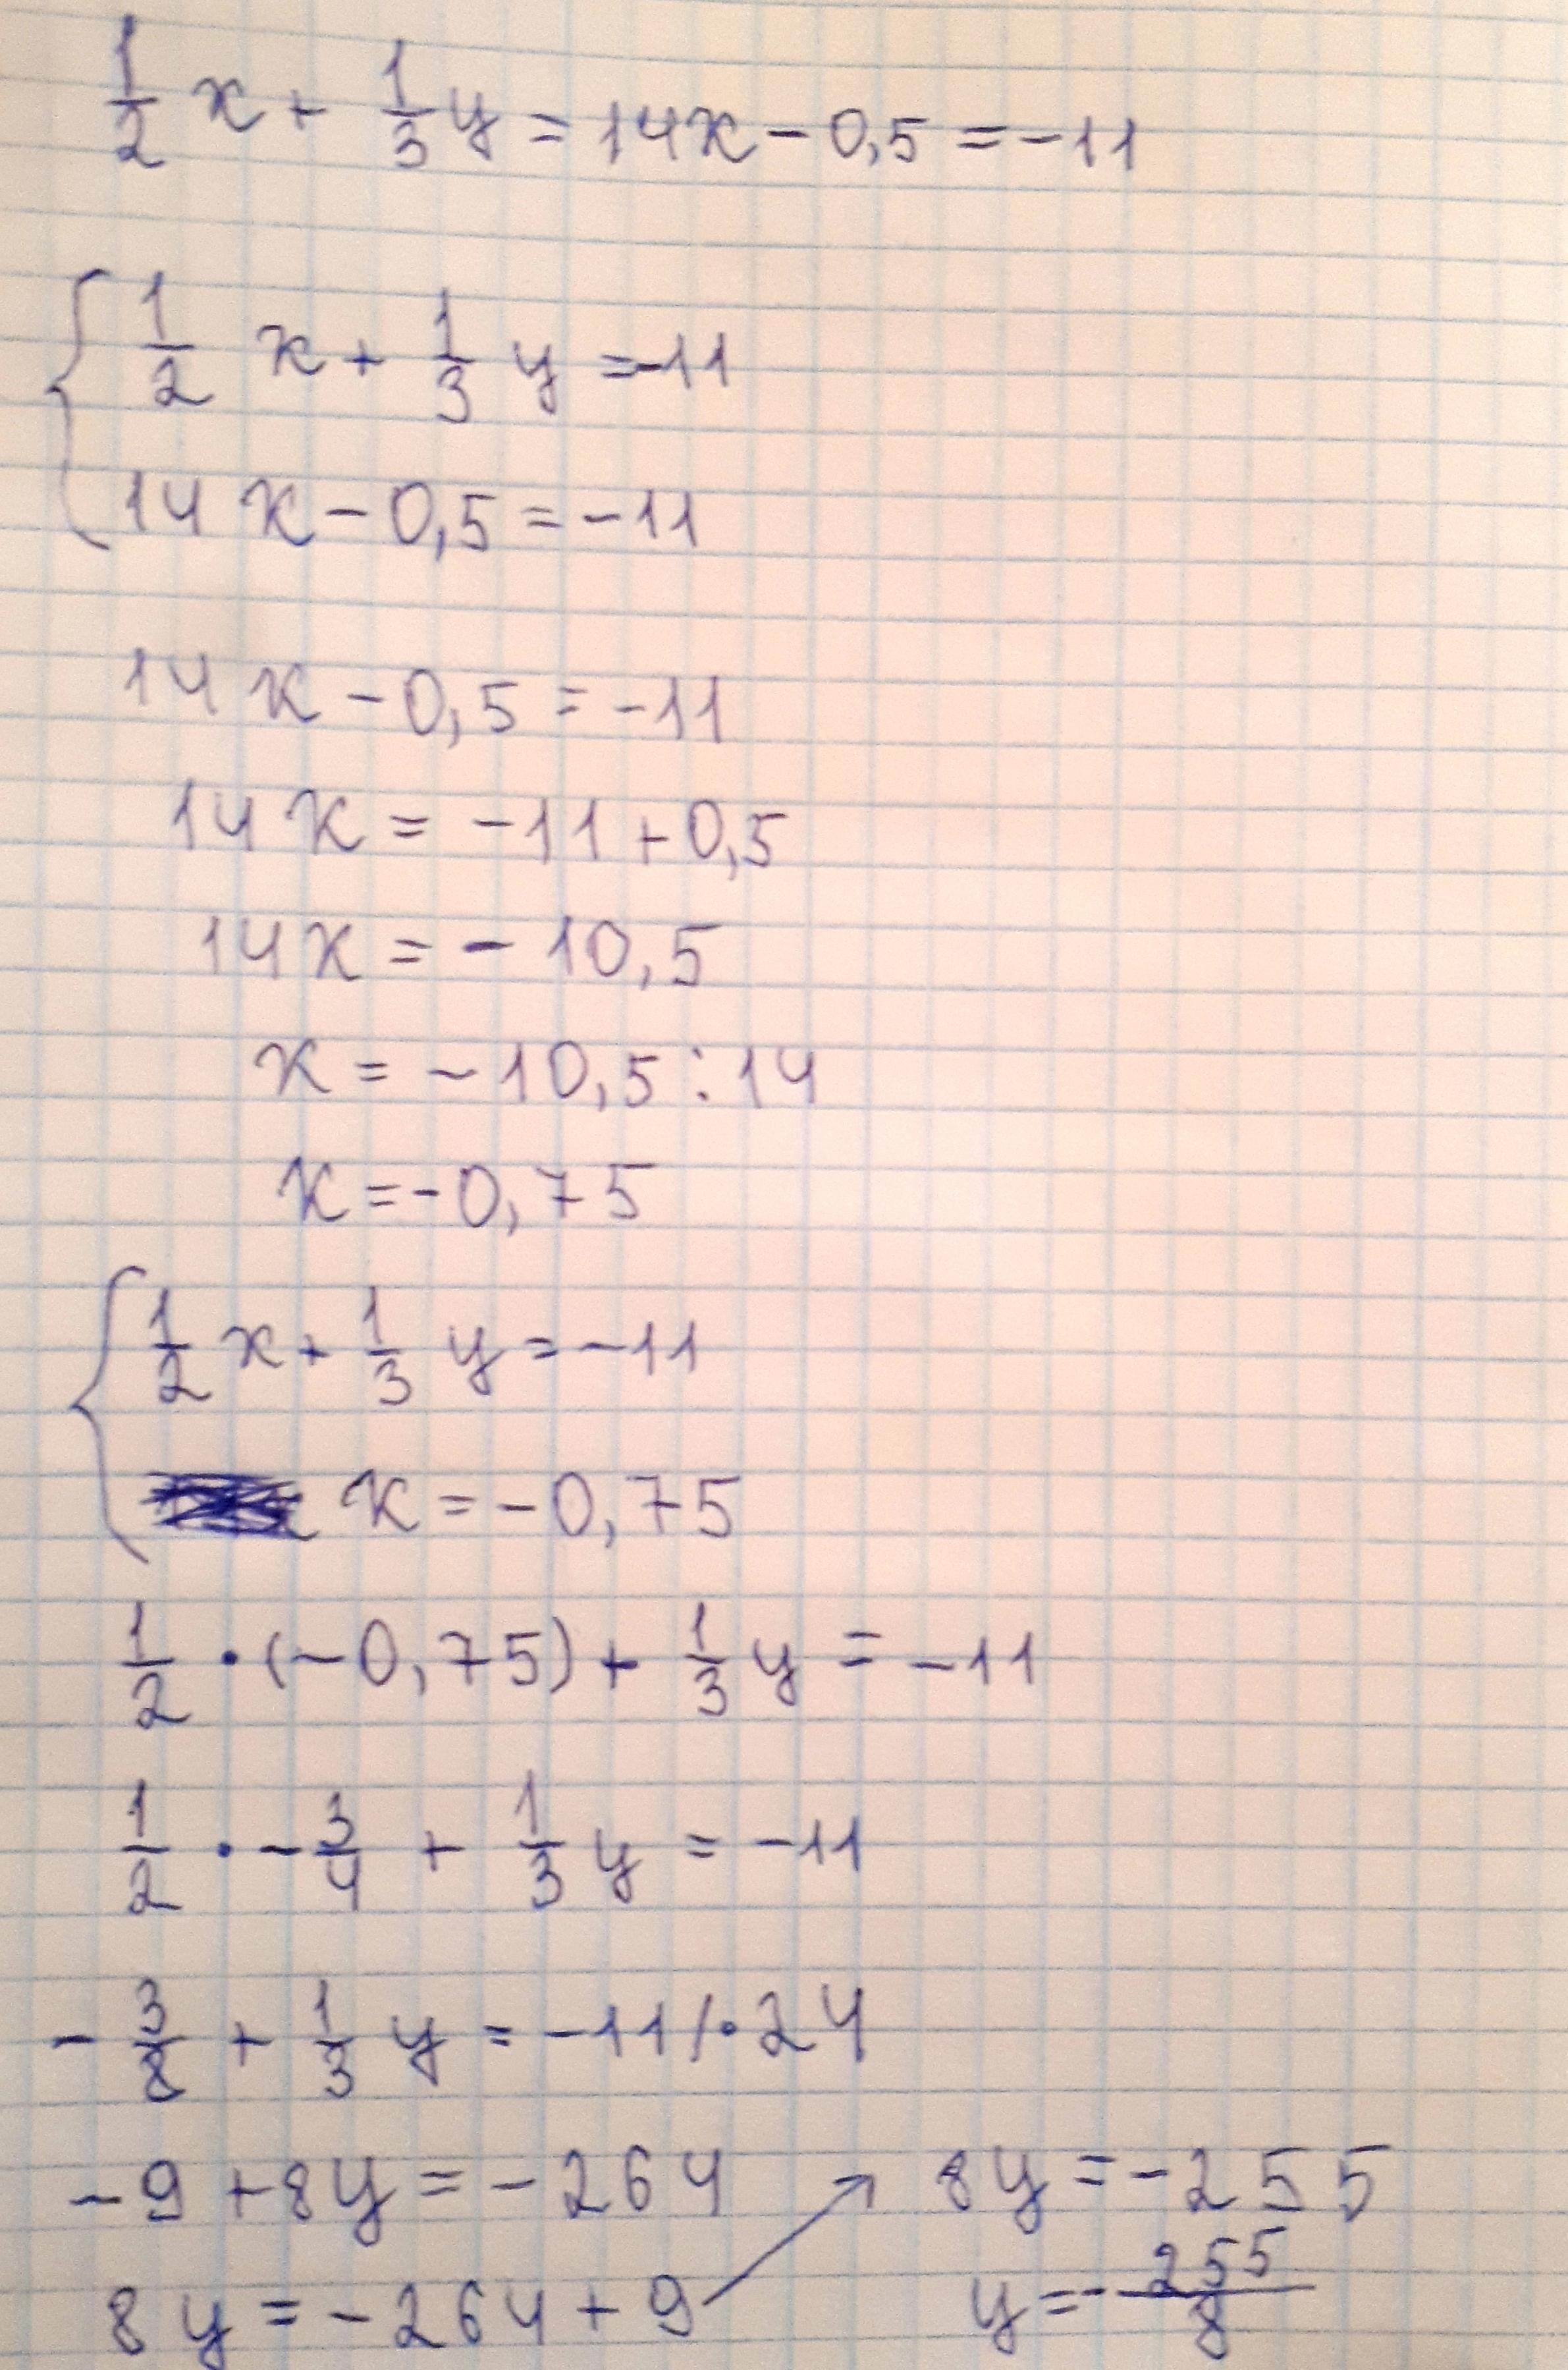 1/2 x + 1/3 y = 14x - 0,5 = -11
1/2 x + 1/3 y = -11
14x - 0,5 = -11
14x - 0,5 = -11
14x = -11 + 0,5
14x = - 10,5
x = -10,5 : 14
x = -0,75
1/2 x + 1/3 y = -11
x = -0,75
1/2 · (-0,75) + 1/3 y = -11
1/2 · - 3/4 + 1/3 y = -11
- 3/8 + 1/3 y = -11 / · 24
-9 + 8y = -264
8y = -264 + 9
8y = -255
y = - 255/8